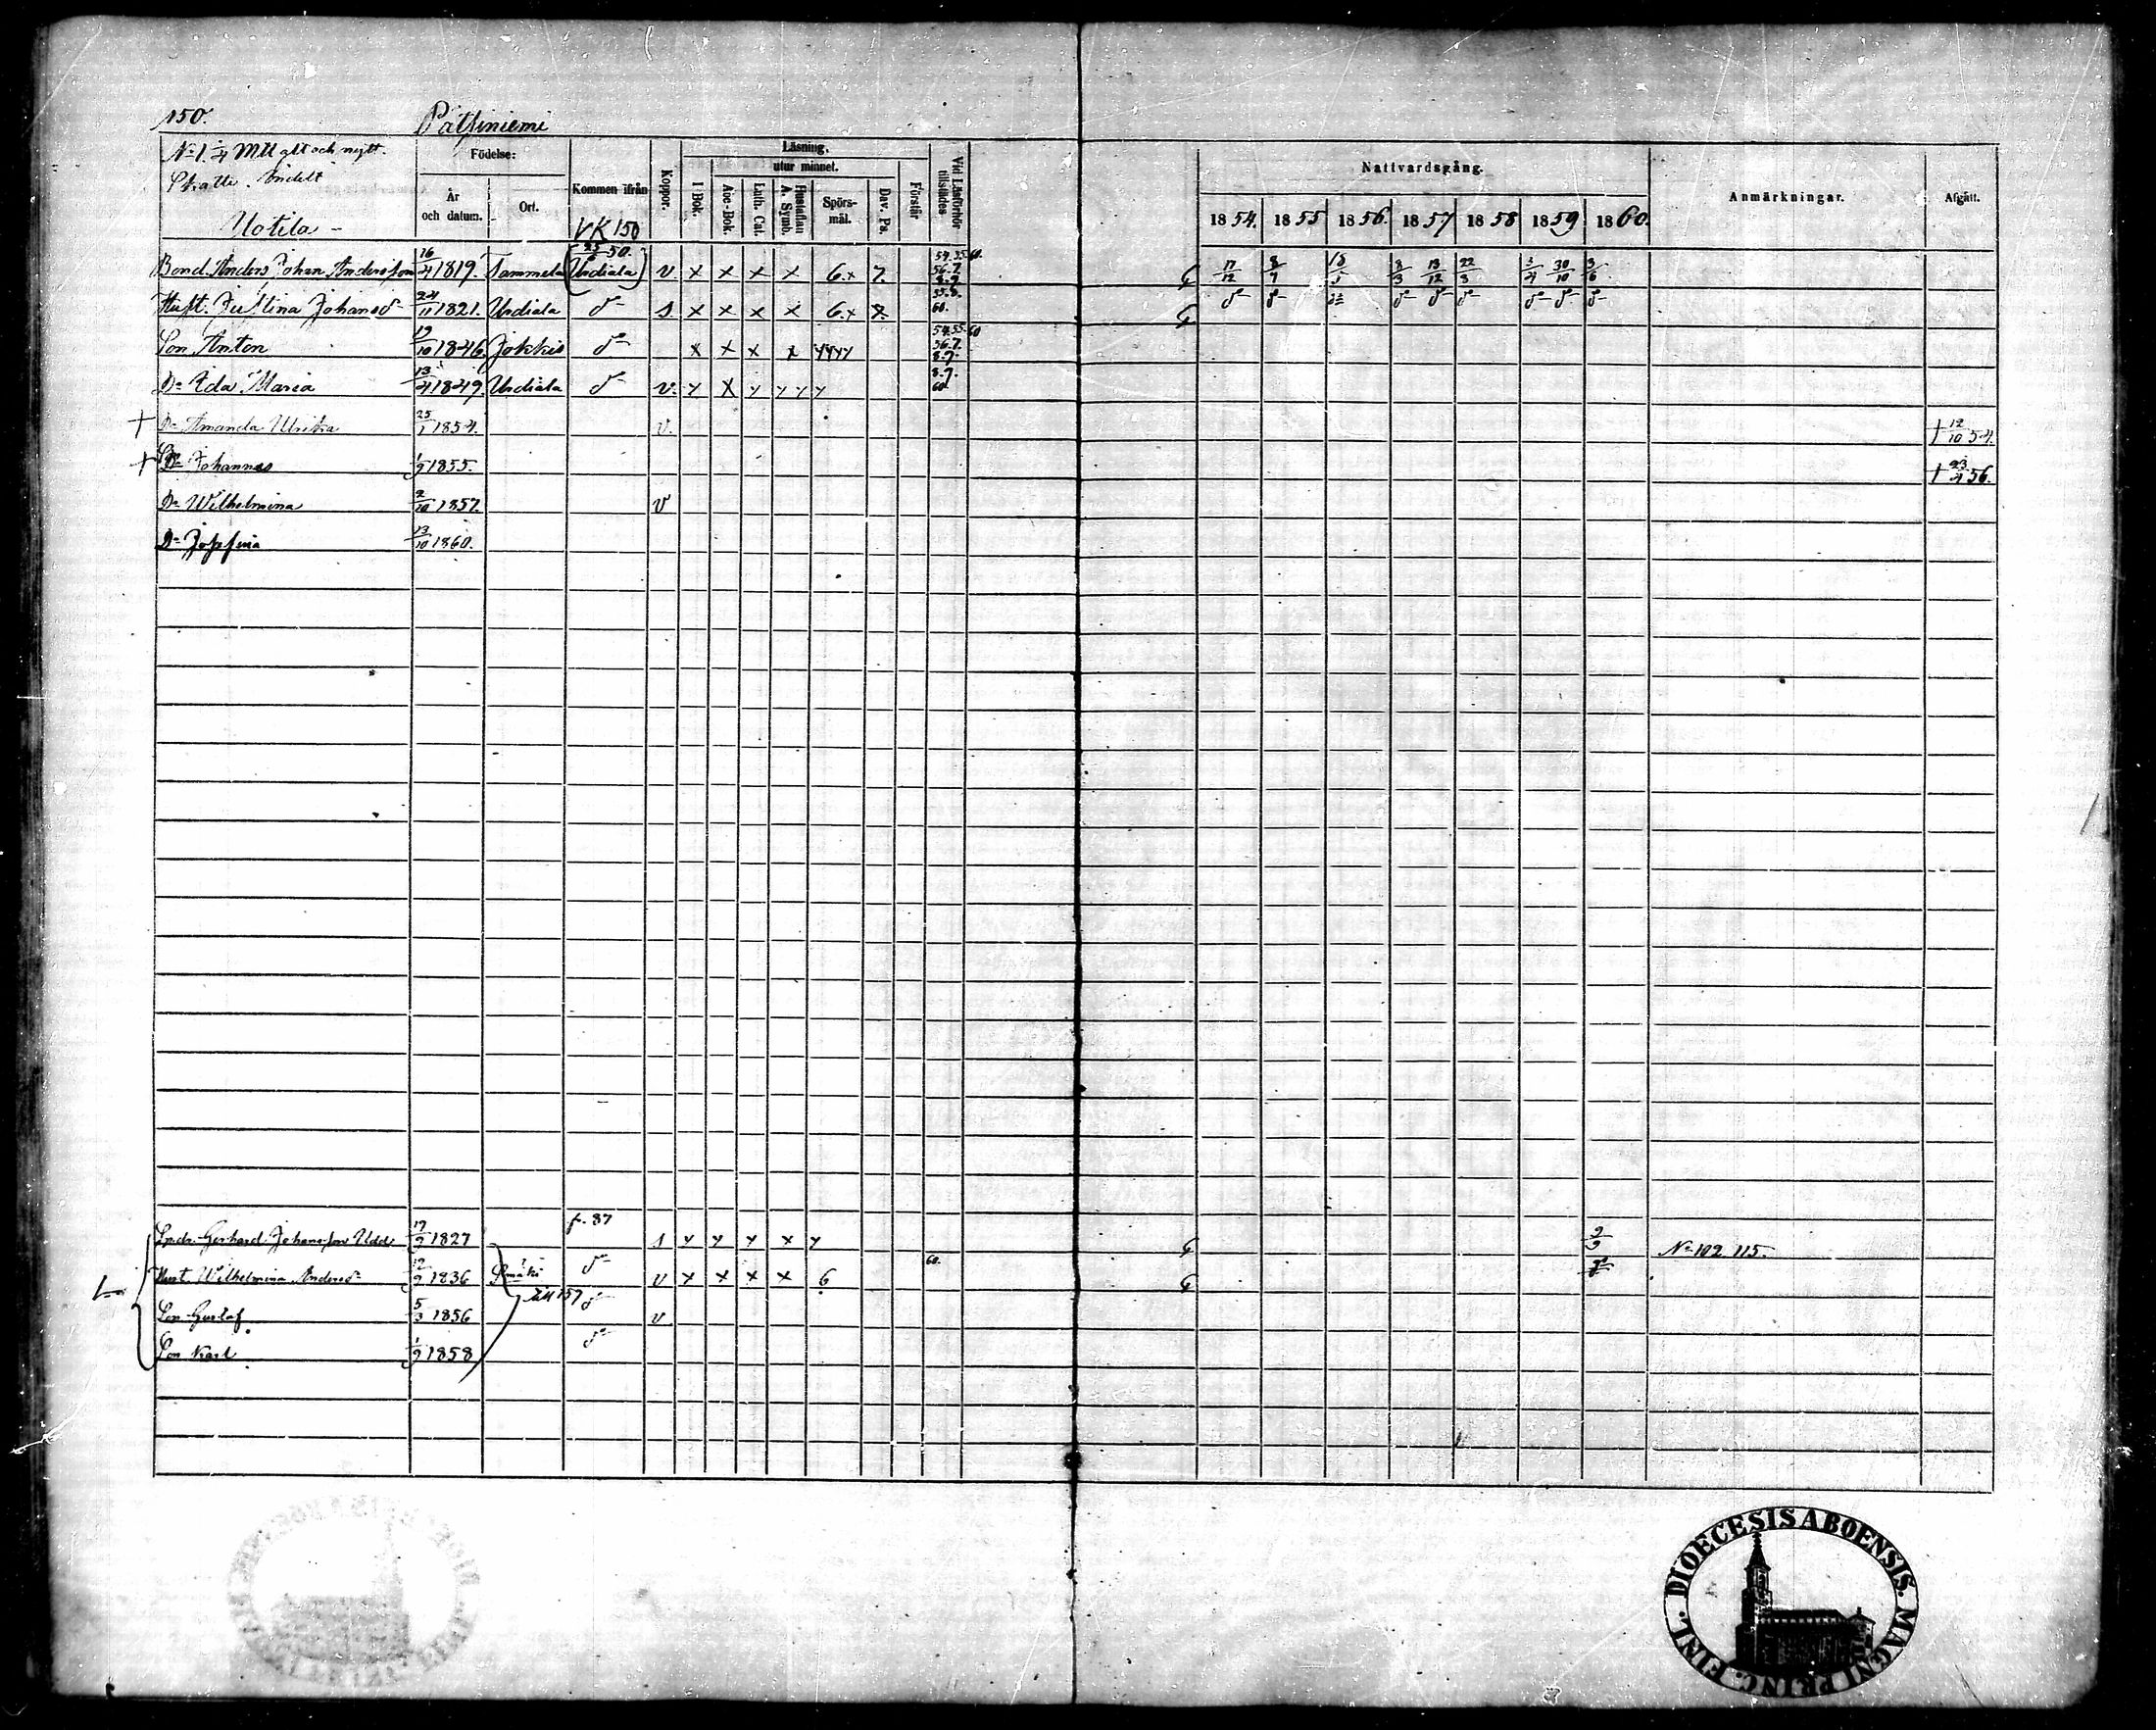 150. Pätsiniemi
No 1. 1/4 Mtl allt och nytt.
Skatte. Indelt
Uotila -
Födelse: År och datum. Ort.
Kommen ifrån VK 150
Koppor.
Läsning. I Bok. utur minnet. Abc-Bok. Luth. Cat. Hustaflan A. Symb. Spörsmål. Dav. Ps. Förstår
Vid Läseförhör tillstädes
Nattvardsgång. 1854. 1855 1856. 1857 1858 1859 1860.
Anmärkningar. Afgått.
Bond. Anders Johan Andersson 16/4 1819. Tammela (25/3 50. Urdiala) v x x x x 6.x 7. 54.55.60. 56.7. 8.9. G 17/12 8/7 18/5 8/3 13/12 22/3 3/4 30/10 3/6
Hust. Justina Johansdr 24/11 1821. Urdiala do s x x x x 6.x x 55.8. 60. G do do do do do do do do
Son Anton 19/10 1846. Jokkis do x x x x yyyy 54.55.60 56.7. 8.9.
Dr Ida Maria 13/4 1849. Urdiala do v. y x y y y y 8.9. 60
+ Dr Amanda Ulrika 25/1 1854. v. † 12/10 54.
+ Son Johannes 1/9 1855. † 23/4 56.
Dr Wilhelmina 2/10 1857. v
Dr Josefina 13/10 1860.
Gerhard Johansson Udd 17/9 1827 fr. 87 s y y y y y G 2/9 No 102 115.
Hust. Wilhelmina Andersdr 12/9 1836 do v x x x x 6 60. G do
till 157
Son Gustaf 5/3 1856 do v
Son Karl 1/9 1858 do
DIOECESIS ABOENSIS. MAGNI PRINC. FINL.